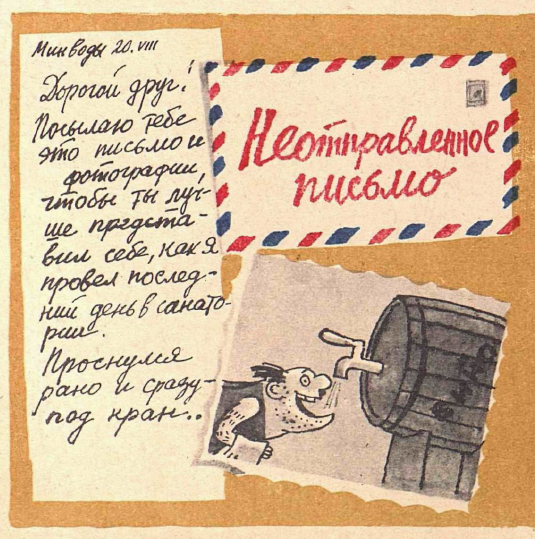 Минводы 20.VIII
Дорогой друг!
Посылаю тебе
это письмо и
фотографии,
чтобы ты луч-
ше предста-
вил себе, как я
провел послед-
ний день в санато-
рии.
Проснулся
рано и сразу-
под кран..
Неотправленное
письмо